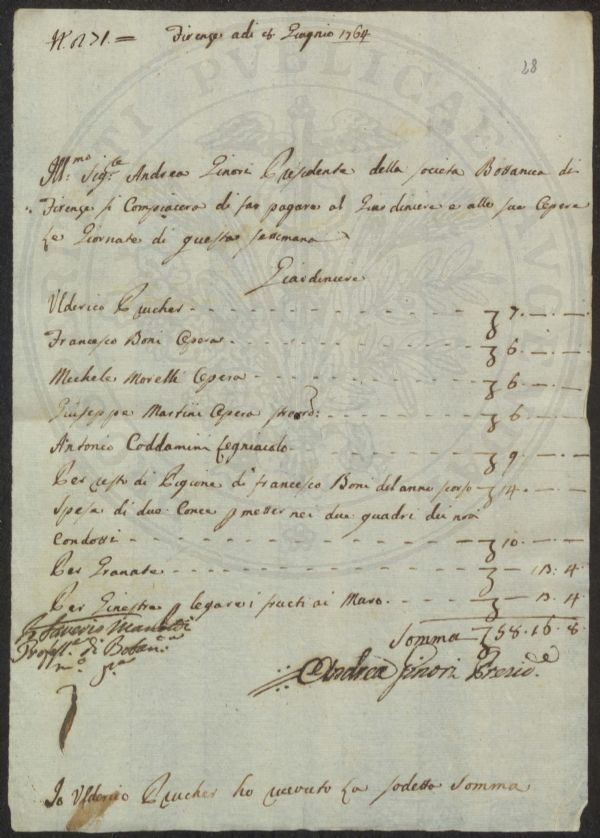 Firenze adi 8 Giugnio 1764
28
Ill:mo Sig:re Andrea Ginori Presidente della società Bottanica di
Firenze si Compiacera di far pagare al Giardiniere e alle sue Opere
Le Giornate di questa settimana
Giardiniere
Ulderico Prucher - - - 7 . — . —
Francesco Boni Opera - - - 6 . — . —
Michele Morelli Opera - - - 6 . — . —
Giuseppe Martini Opera - - - 6 . — . —
Antonio Coddamini Legniaiolo - - - 9 . — . —
Per resto di Pigione di Francesco Boni del anno scorso 14 . — . —
Spesa di due Conce p metter nei due quadri dei
Condotti - - - 10 . — . —
Per Granate - - - — . 13 . 4
Per Ginestra p legare i frutti ai Muro. - - - — . 13 . 4
Saverio Manetti
Profess.e di Botan.ca
m.o p.a
Somma 58 . 16 . 8
Andrea Ginori Presid.e
Io Ulderico Prucher ho riceuto La sodetta Somma